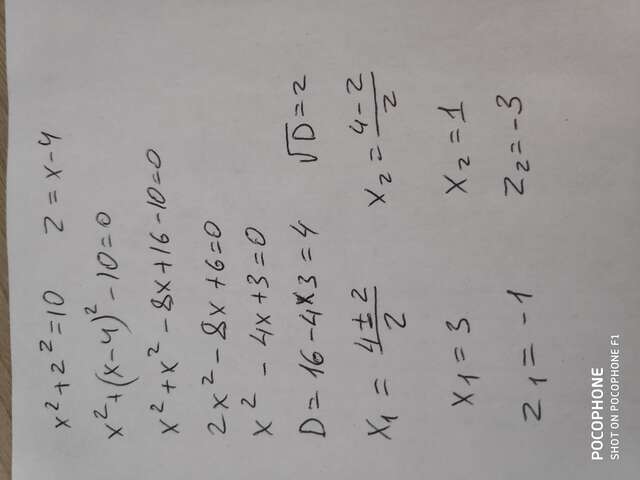 x² + z² = 10    z = x - 4
x² + (x - 4)² - 10 = 0
x² + x² - 8x + 16 - 10 = 0
2x² - 8x + 6 = 0
x² - 4x + 3 = 0
D = 16 - 4*3 = 4    √D = 2
x₁ = (4 ± 2)/2    x₂ = (4 - 2)/2
x₁ = 3    x₂ = 1
z₁ = -1    z₂ = -3
POCOPHONE
SHOT ON POCOPHONE F1